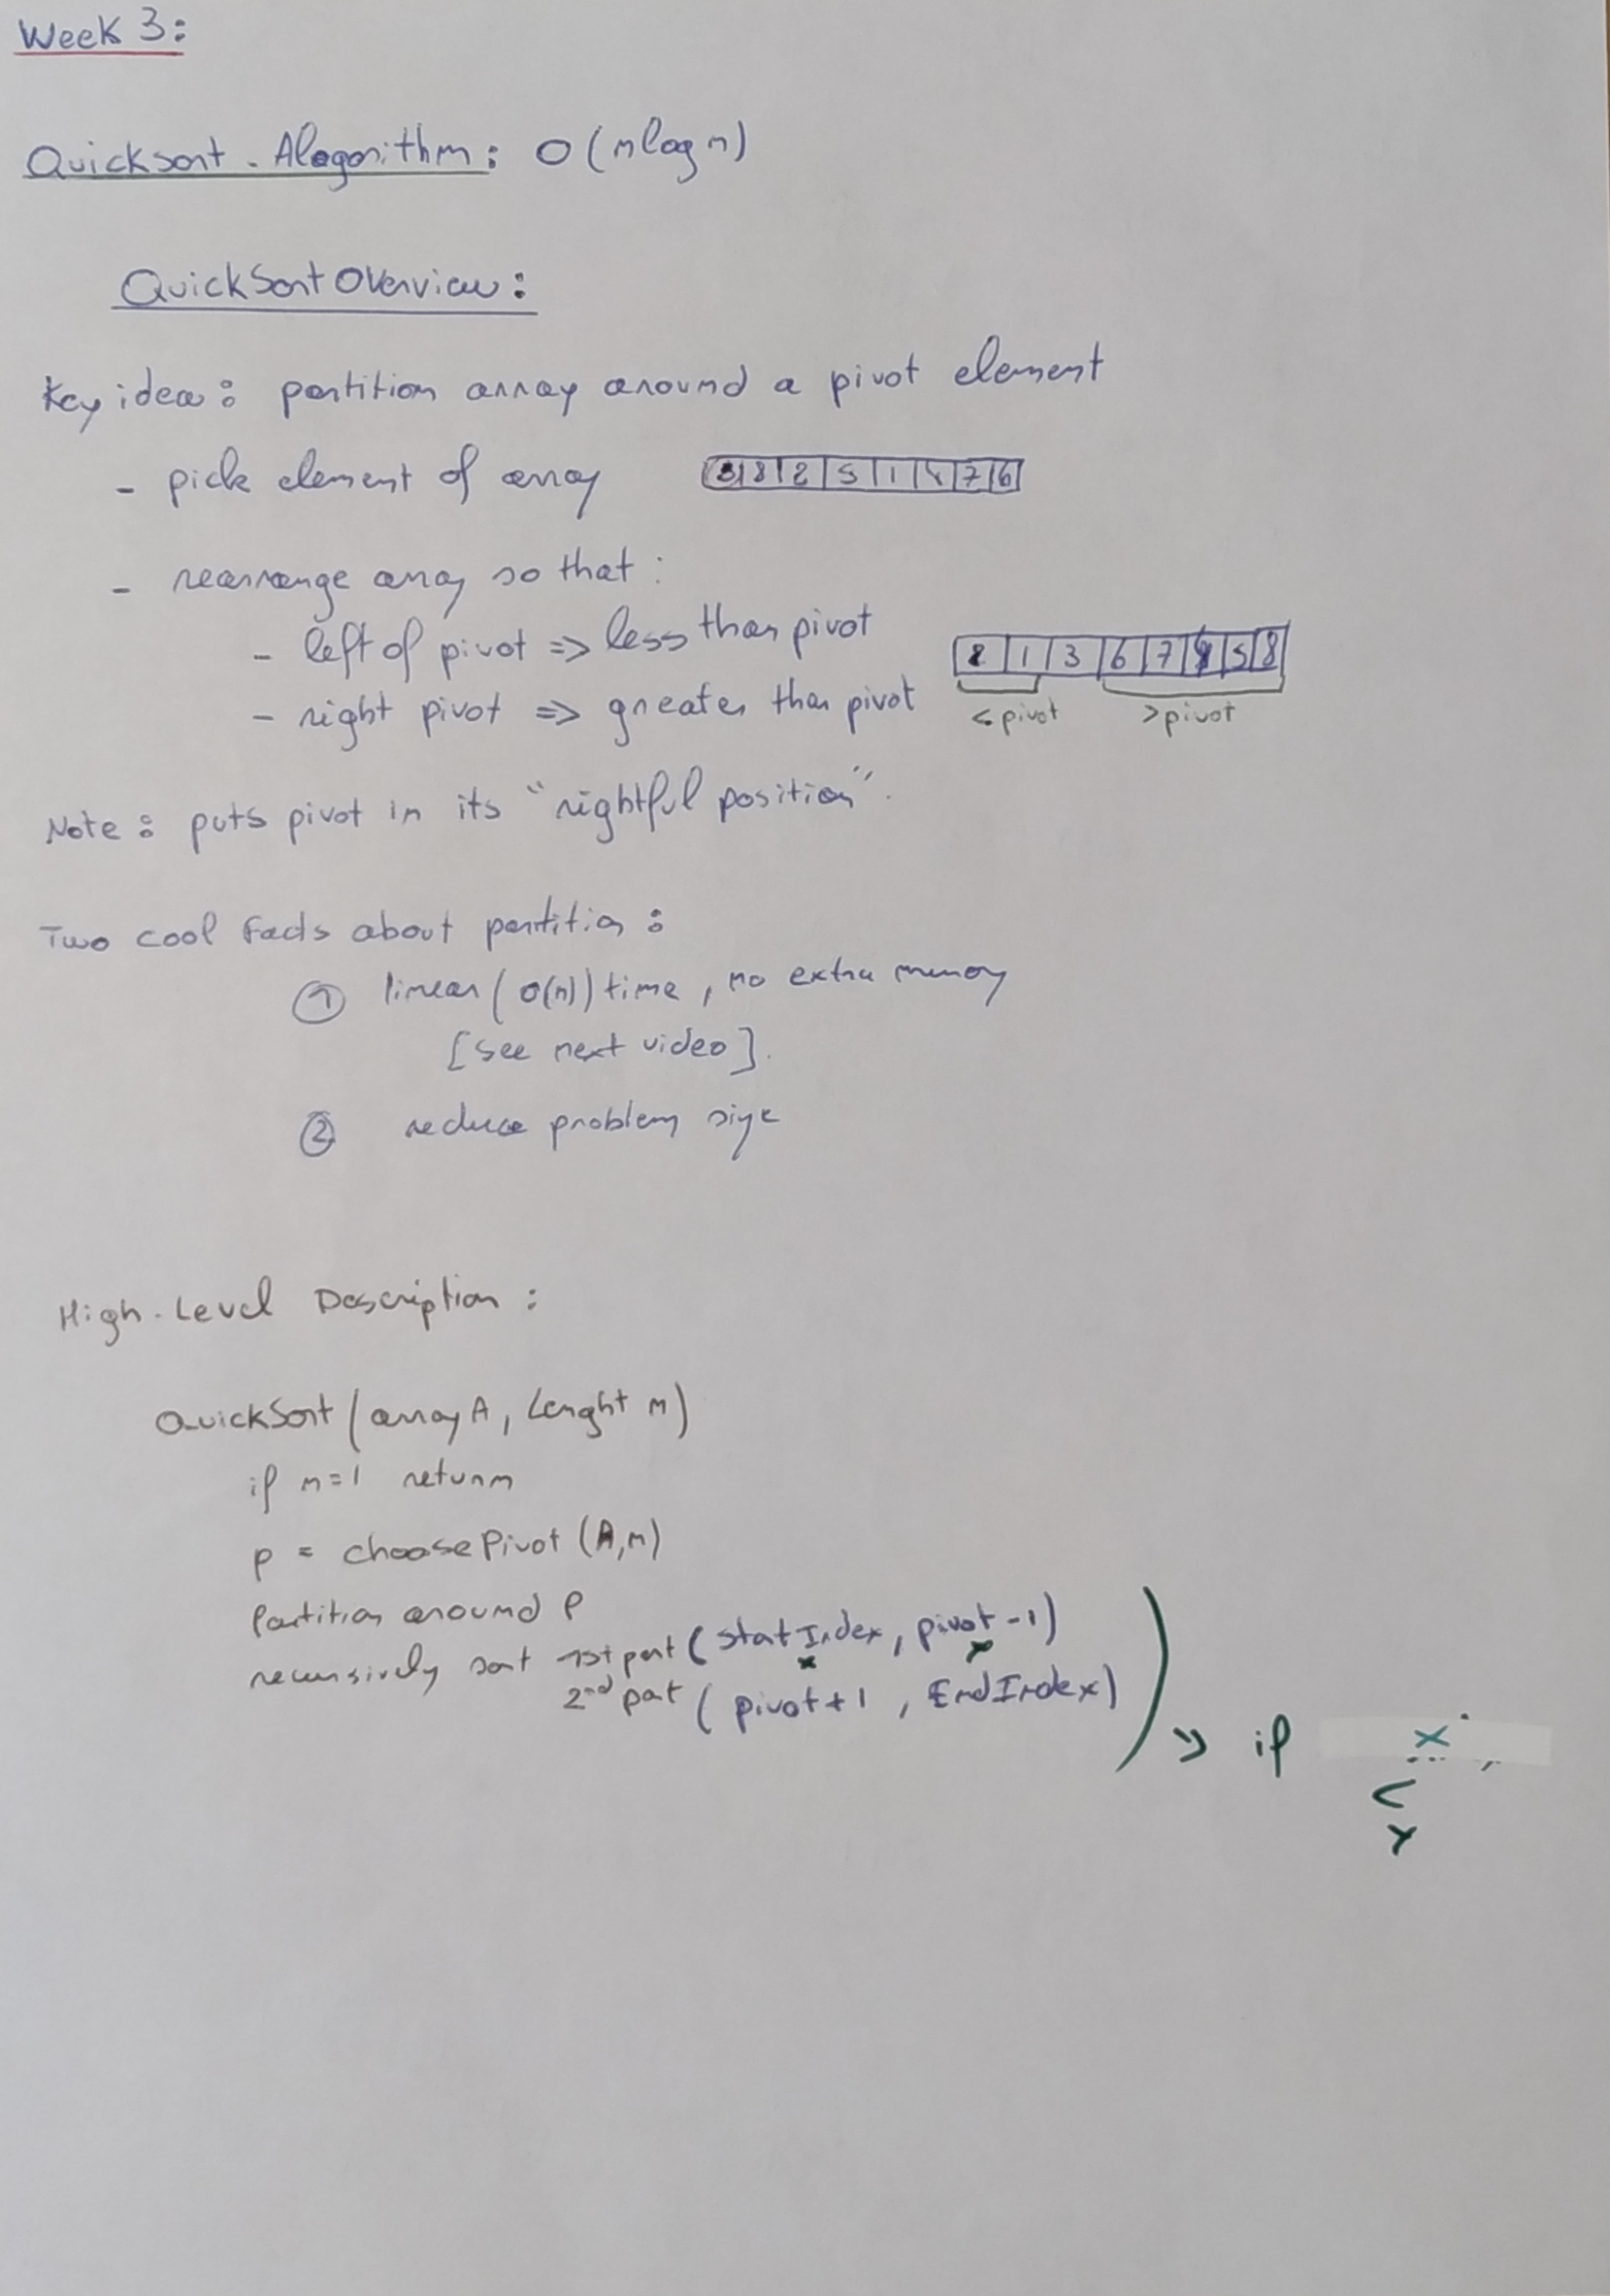 Week 3:
Quicksort - Alogorithm: O(nlogn)
QuickSort Overview:
Key idea: partition array around a pivot element
- pick element of array
3 8 2 5 1 4 7 6
- rearrange array so that:
- left of pivot => less than pivot
- right pivot => greater than pivot
2 1 3 6 7 4 5 8
< pivot >pivot
Note: puts pivot in its "rightful position".
Two cool facts about partition:
① linear (O(n)) time, no extra memory
[see next video].
② reduce problem size
High-Level Description:
QuickSort (array A, Lenght n)
if n=1 return
p = choosePivot (A,n)
Partition around P
recursively sort 1st part (statIndex, pivot-1)
x y
2nd part (pivot+1, EndIndex)
=> if x
<
y